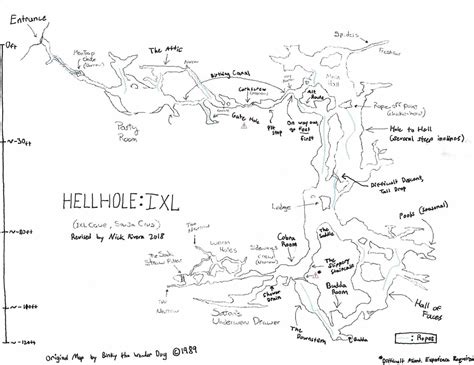 Entrance
0ft
~-30ft
~-80ft
~-100ft
~-120ft
The Attic
Birthing Canal
Corkscrew
(narrow)
Party
Room
Gate Hole
Pit
Stop
On way out
go Feet
first
Alt
Route
Main
Hall
Spiders
Rope off point
Hole to Hell
(several steep inclines)
Difficult Descent,
Tall Drop
Ledge
Pools (seasonal)
HELLHOLE:IXL
(IXL CAVE, Santa Cruz)
Revised by Nick Rivera 2018
Worm
Holes
Sideways
Crawl
(narrow)
Cobra
Room
The Saddle
The
Slippery
Staircase
Budda
Room
Shower
Drain
Satan's
Underwear Drawer
The
Downstem
Budda
Hall of
Faces
: Ropes
Original Map by Binky the Wonder Dog ©1989
*Difficult Ascent, Experience Required